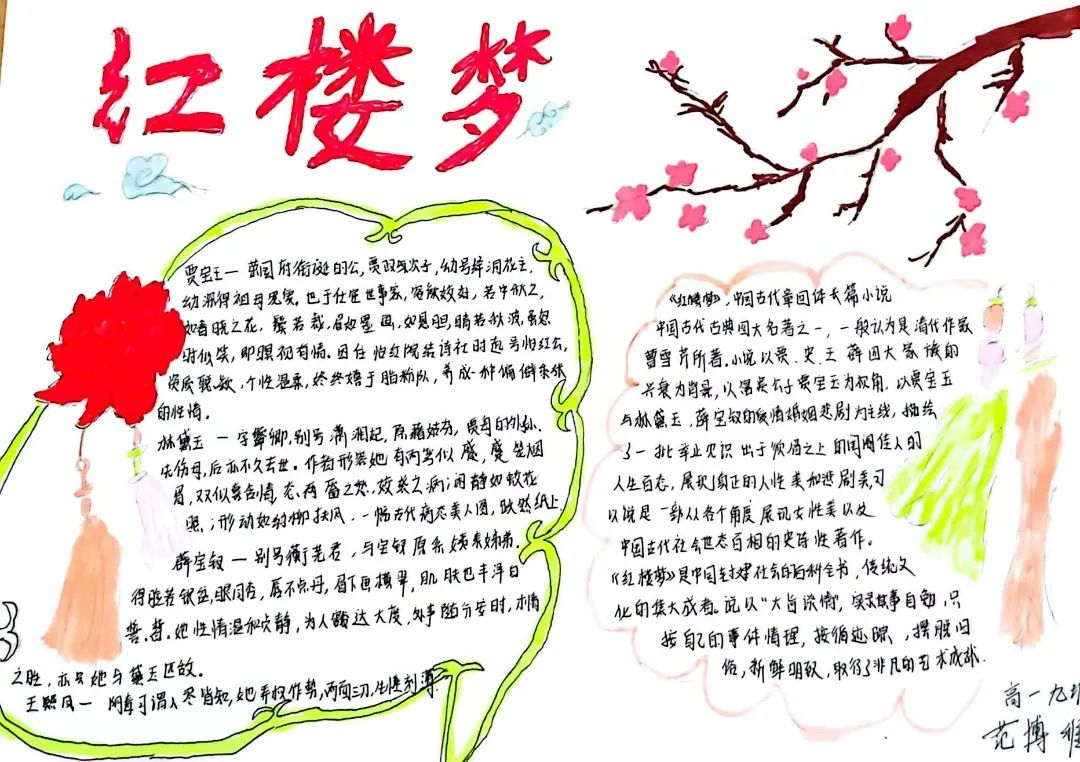 红楼梦
贾宝玉一荣国府衔诞的公,贾政与次子,幼号绛洞花主,
幼深得祖母溺爱。也于仕宦世事家,若中秋之,
如春晓之花,鬓若裁,眉如墨画,如悬胆,睛若秋波,虽怒
时似笑,即瞋视有情。因住怡红院结诗社时起号怡红公,
个性温柔,终终嬉于脂粉队,养成一种偏僻乖张
的性情。
林黛玉一字颦卿,别号潇湘妃,原籍姑苏,贾母的外孙,
先伤母,后亦不久去世。作者形装她有两弯似蹙,蹙笼烟
眉,双似喜含情,态两靥之愁,娇袭之病;闲静如姣花
照,;形动如弱柳扶风.一幅古代病态美人图,跃然纸上
薛宝钗一别号蘅芜君,与宝钗原系姨表姊弟,
得脸若银盆,眼同杏,唇不点丹,眉下画横翠,肌肤也丰泽白
她性情温和文静,为人豁达大度,处事随分安时,
之胜,亦是她与黛玉区故。
王熙凤一阿尊可谓人尽皆知,她弄权作势,两面三刀,生性刻薄
《红楼梦》,中国古代章回体长篇小说
中国古代古典四大名著之一,一般认为是清代作家
曹雪芹所著。小说以贾、史、王、薛四大家族的
兴衰为背景,以富贵公子贾宝玉为视角,以贾宝玉
与林黛玉、薛宝钗的爱情婚姻悲剧为主线,描绘
了一批举止见识出于须眉之上的闺阁佳人的
人生百态,展现真正的人性美和悲剧美可
以说是一部从各个角度展现女性美以及
中国古代社会世态百相的史诗性著作。
《红楼梦》是中国封建社会的百科全书,传统文
化的集大成者。说以“大旨谈情,实录其事自勉,只
按自己的事件情理,按循迹踪,摆脱旧
俗,新鲜明致,取得了非凡的艺术成就.
高一九班
范搏雅